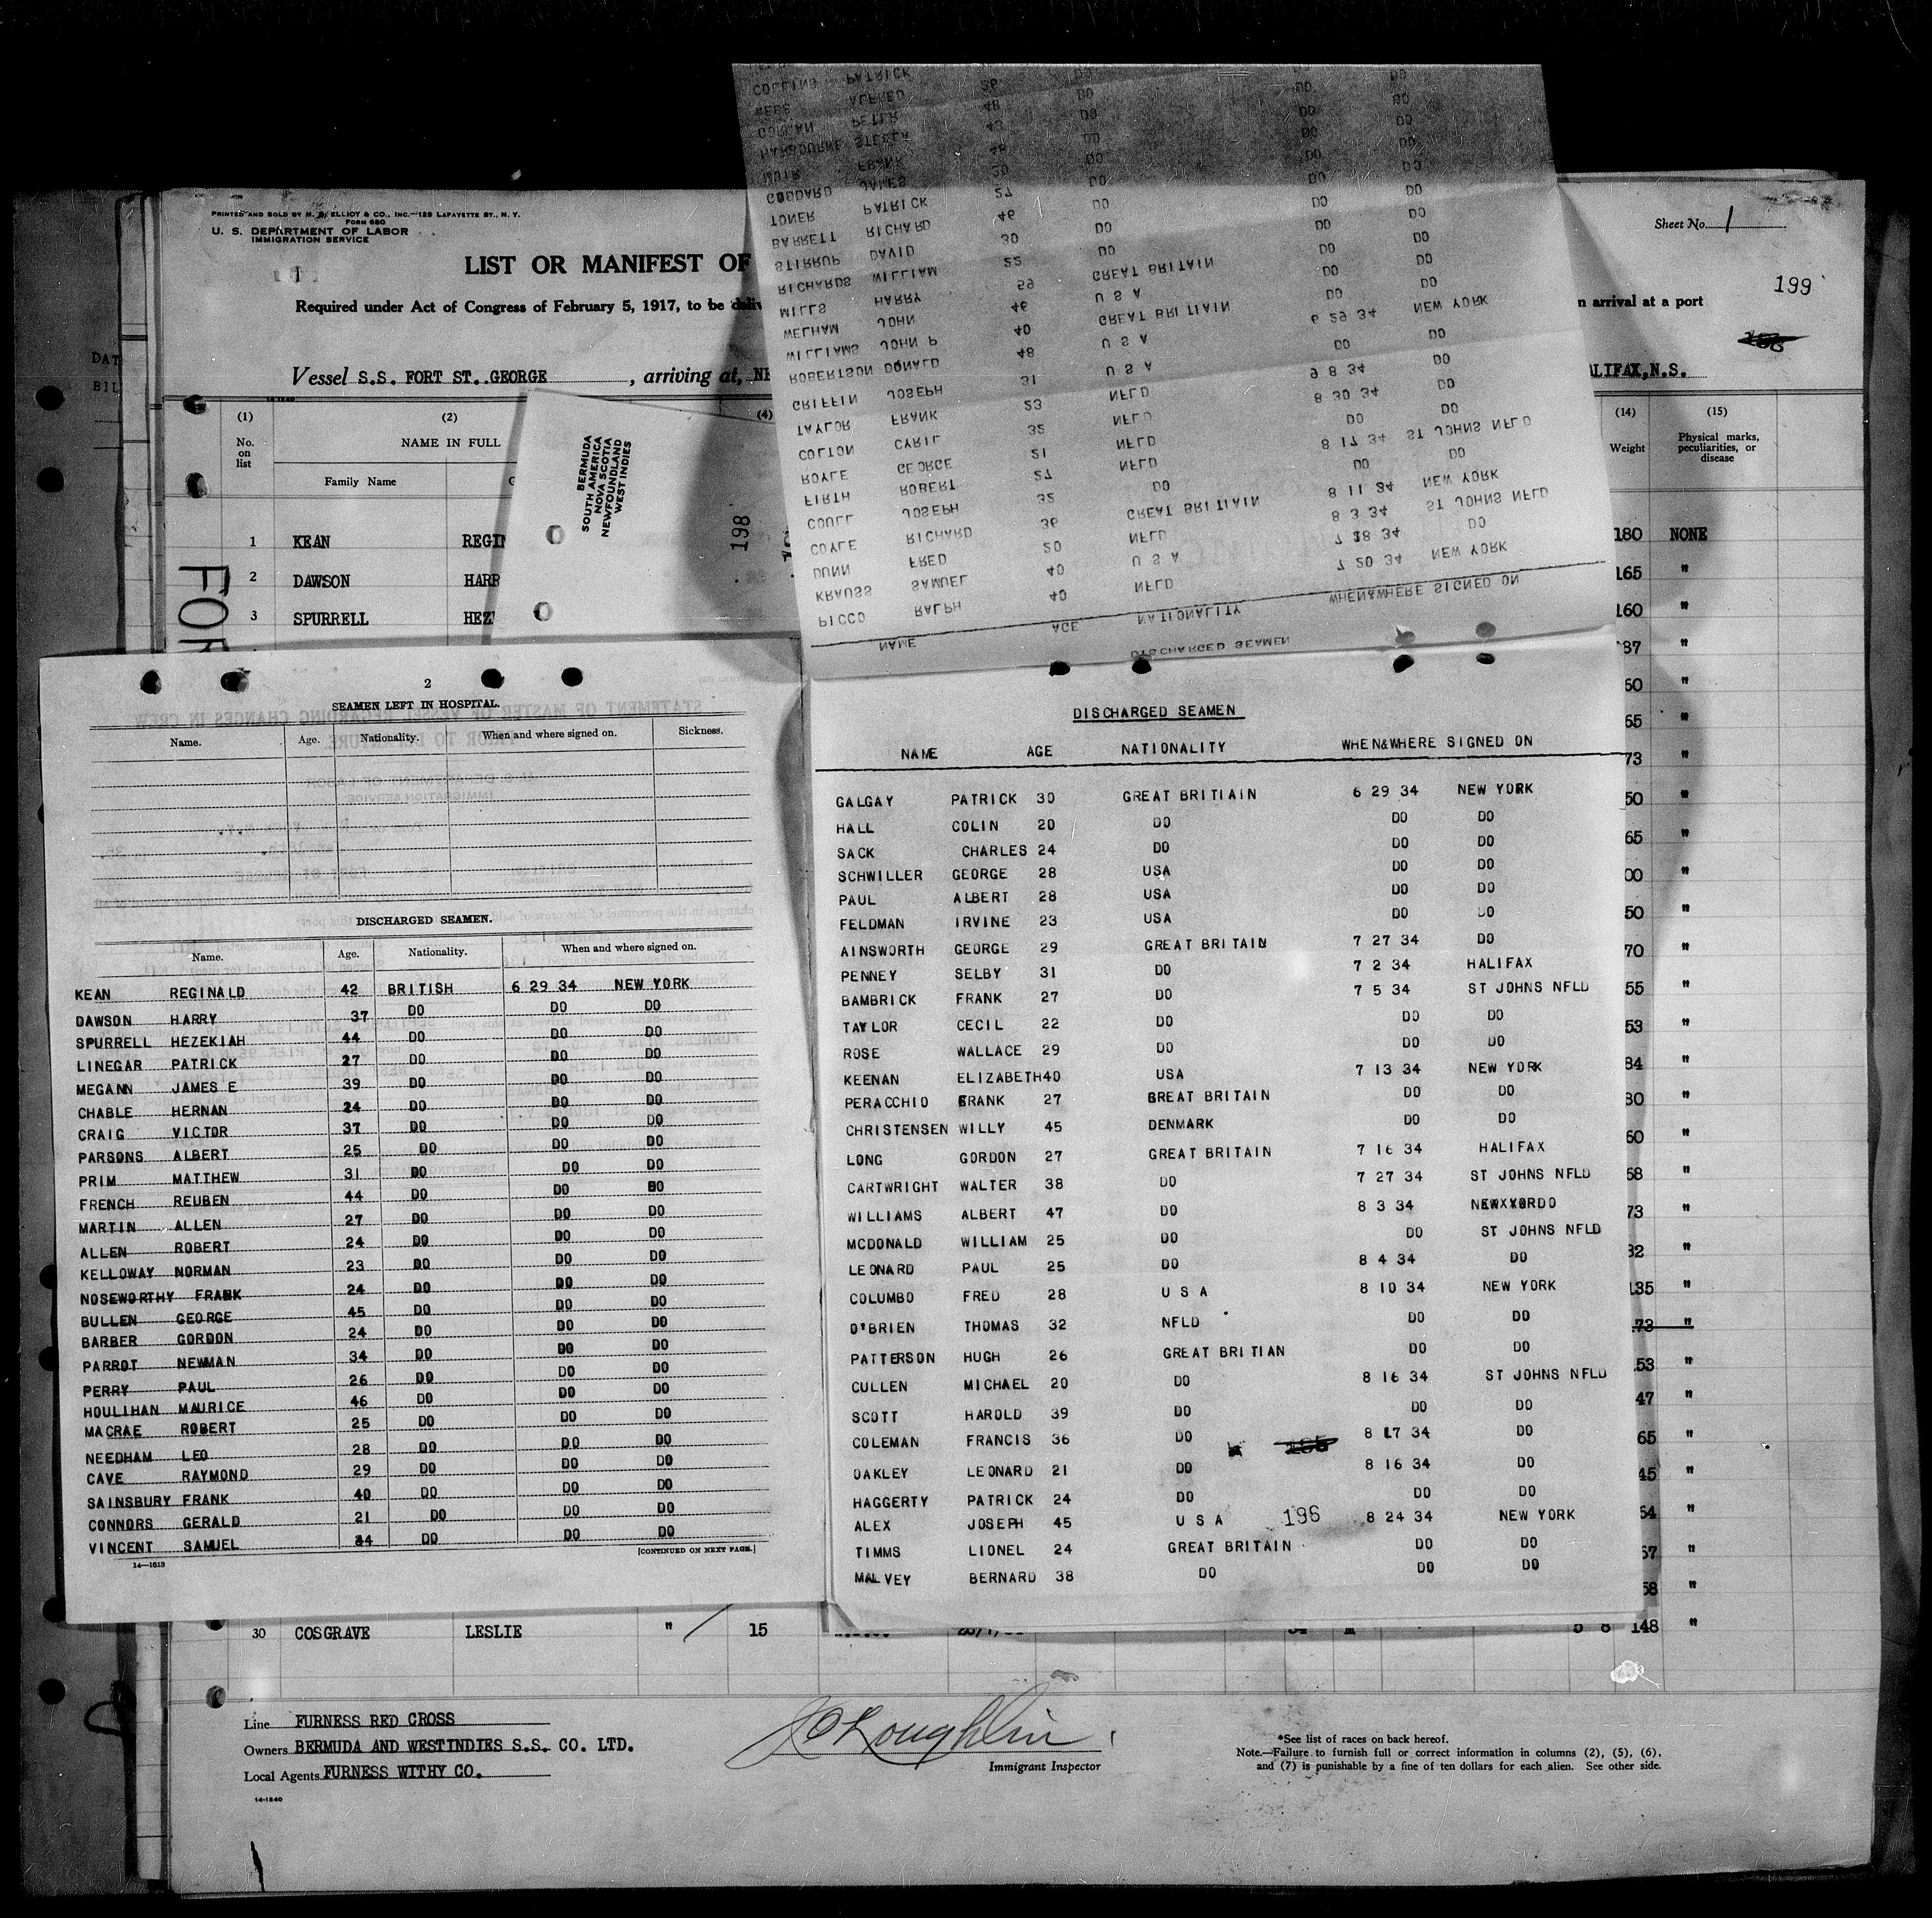 PRINTED AND SOLD BY M. B. ELLIOT & CO., INC.—129 LAFAYETTE ST., N. Y.
FORM 680
U. S. DEPARTMENT OF LABOR
IMMIGRATION SERVICE
Sheet No. 1
LIST OR MANIFEST OF
199
Required under Act of Congress of February 5, 1917, to be
n arrival at a port
Vessel S.S. FORT ST. GEORGE, arriving at,
ALIFAX, N.S.
(1) (2) (4) (14) (15)
No. on list
NAME IN FULL
Family Name
Weight
Physical marks, peculiarities, or disease
1 KEAN REGIN 180 NONE
2 DAWSON HARR 165 "
3 SPURRELL HEZ 160 "
BERMUDA
SOUTH AMERICA
NOVA SCOTIA
NEWFOUNDLAND
WEST INDIES
198
FOR
COLLINS PATRICK 26 DO DO DO
WEBB ALFRED 48 DO DO DO
GORMAN PETER 43 DO DO DO
HARBOURNE STEELE 48 DO DO DO
MUIR FRANK 20 DO DO DO
GODDARD JAMES 27 DO DO DO
TONER PATRICK 46 DO DO DO
BARRETT RICHARD 30 DO DO DO
STIRRUP DAVID 22 DO DO DO
RICHARDS WILLIAM 59 GREAT BRITAIN DO DO
MILLS HARRY 46 U S A DO DO
WELHAM JOHN 40 GREAT BRITIAIN 6 29 34 NEW YORK
WILLIAMS JOHN P 48 U S A DO DO
ROBERTSON DONALD 31 U S A 9 8 34 DO
GRIFFIN JOSEPH 23 NFLD 8 30 34 DO
TAYLOR FRANK 32 NFLD DO DO
COLTON CYRIL 21 NFLD 8 17 34 ST JOHNS NFLD
ROYLE GEORGE 27 NFLD DO DO
FIRTH ROBERT 32 DO 8 11 34 NEW YORK
COULL JOSEPH 36 GREAT BRITIAIN 8 3 34 ST JOHNS NFLD
COYLE RICHARD 20 NFLD 7 28 34 DO
DUNN FRED 40 U S A 7 20 34 NEW YORK
KRAUSS SAMUEL 40 NFLD
PICCO RALPH
NAME AGE NATIONALITY WHEN&WHERE SIGNED ON
DISCHARGED SEAMEN
2
SEAMEN LEFT IN HOSPITAL.
Name. Age. Nationality. When and where signed on. Sickness.
DISCHARGED SEAMEN.
Name. Age. Nationality. When and where signed on.
KEAN REGINALD 42 BRITISH 6 29 34 NEW YORK
DAWSON HARRY 37 DO DO DO
SPURRELL HEZEKIAH 44 DO DO DO
LINEGAR PATRICK 27 DO DO DO
MEGANN JAMES E 39 DO DO DO
CHABLE HERNAN 24 DO DO DO
CRAIG VICTOR 37 DO DO DO
PARSONS ALBERT 25 DO DO DO
PRIM MATTHEW 31 DO DO DO
FRENCH REUBEN 44 DO DO DO
MARTIN ALLEN 27 DO DO DO
ALLEN ROBERT 24 DO DO DO
KELLOWAY NORMAN 23 DO DO DO
NOSEWORTHY FRANK 24 DO DO DO
BULLEN GEORGE 45 DO DO DO
BARBER GORDON 24 DO DO DO
PARROT NEWMAN 34 DO DO DO
PERRY PAUL 26 DO DO DO
HOULIHAN MAURICE 46 DO DO DO
MACRAE ROBERT 25 DO DO DO
NEEDHAM LEO 28 DO DO DO
CAVE RAYMOND 29 DO DO DO
SAINSBURY FRANK 40 DO DO DO
CONNORS GERALD 21 DO DO DO
VINCENT SAMUEL 34 DO DO DO
14—1613 [CONTINUED ON NEXT PAGE.]
DISCHARGED SEAMEN
NAME AGE NATIONALITY WHEN&WHERE SIGNED ON
GALGAY PATRICK 30 GREAT BRITIAIN 6 29 34 NEW YORK
HALL COLIN 20 DO DO DO
SACK CHARLES 24 DO DO DO
SCHWILLER GEORGE 28 USA DO DO
PAUL ALBERT 28 USA DO DO
FELDMAN IRVINE 23 USA DO DO
AINSWORTH GEORGE 29 GREAT BRITAIN 7 27 34 DO
PENNEY SELBY 31 DO 7 2 34 HALIFAX
BAMBRICK FRANK 27 DO 7 5 34 ST JOHNS NFLD
TAYLOR CECIL 22 DO DO DO
ROSE WALLACE 29 DO DO DO
KEENAN ELIZABETH 40 USA 7 13 34 NEW YORK
PERACCHIO FRANK 27 GREAT BRITAIN DO DO
CHRISTENSEN WILLY 45 DENMARK DO DO
LONG GORDON 27 GREAT BRITAIN 7 16 34 HALIFAX
CARTWRIGHT WALTER 38 DO 7 27 34 ST JOHNS NFLD
WILLIAMS ALBERT 47 DO 8 3 34 NEWXXORDO
MCDONALD WILLIAM 25 DO DO ST JOHNS NFLD
LEONARD PAUL 25 DO 8 4 34 DO
COLUMBO FRED 28 U S A 8 10 34 NEW YORK
O'BRIEN THOMAS 32 NFLD DO DO
PATTERSON HUGH 26 GREAT BRITIAN DO DO
CULLEN MICHAEL 20 DO 8 16 34 ST JOHNS NFLD
SCOTT HAROLD 39 DO DO DO
COLEMAN FRANCIS 36 DO 8 17 34 DO
OAKLEY LEONARD 21 DO 8 16 34 DO
HAGGERTY PATRICK 24 DO DO DO
ALEX JOSEPH 45 U S A 8 24 34 NEW YORK
196
TIMMS LIONEL 24 GREAT BRITAIN DO DO
MALVEY BERNARD 38 DO DO DO
30 COSGRAVE LESLIE " 15 5 8 148 "
Line FURNESS RED CROSS
Owners BERMUDA AND WESTINDIES S.S. CO. LTD.
Local Agents FURNESS WITHY CO.
14-1240
Immigrant Inspector
*See list of races on back hereof.
Note.—Failure to furnish full or correct information in columns (2), (5), (6),
and (7) is punishable by a fine of ten dollars for each alien. See other side.